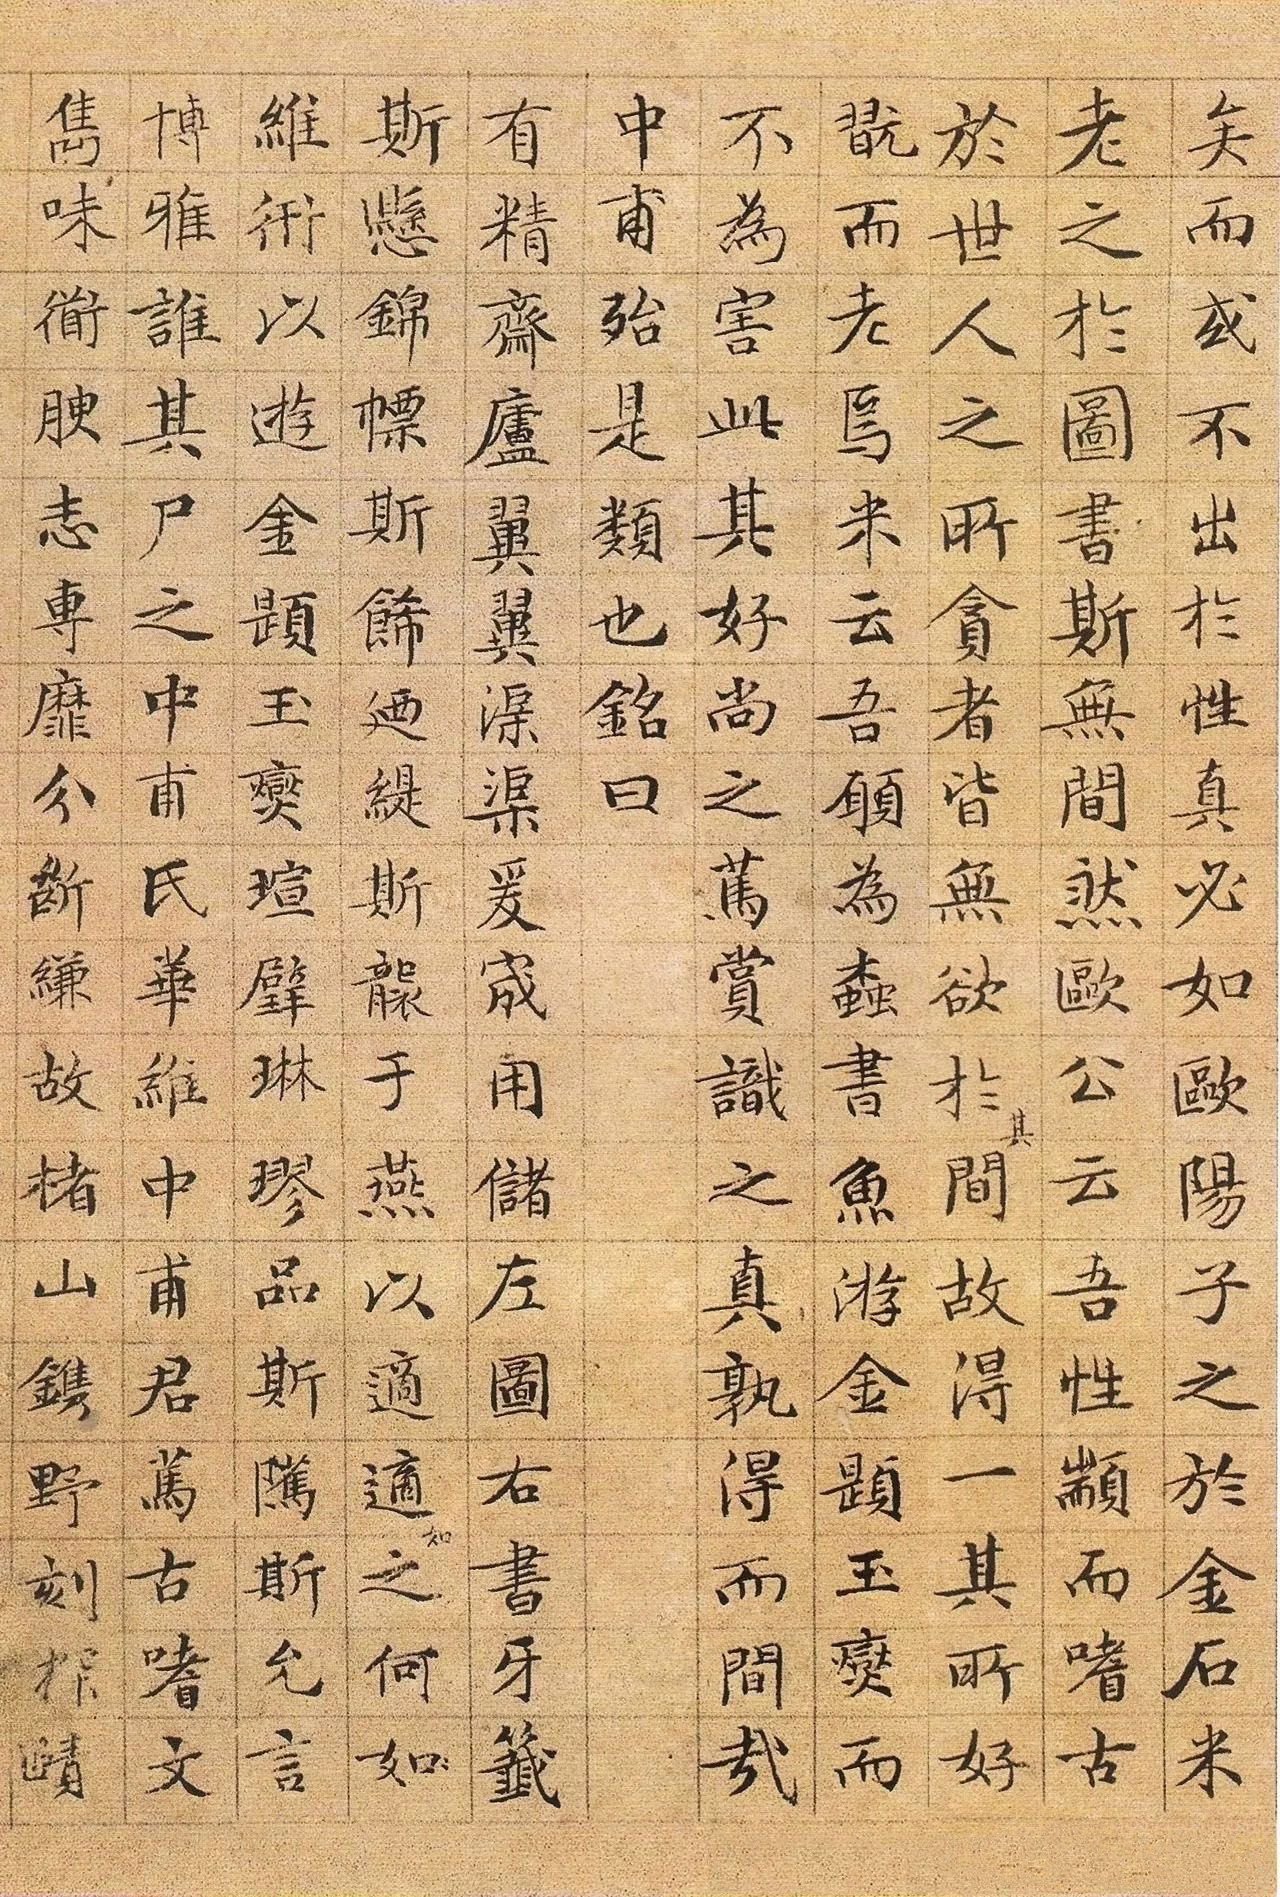 矣而或不出於性真必如歐陽子之於金石米
老之於圖書斯無間然歐公云吾性顓而嗜古
於世人之所貪者皆無欲於其間故得一其所好
翫而老焉米云吾願為蠹書魚游金題玉躞而
不為害此其好尚之篤賞識之真孰得而間哉
中甫殆是類也銘曰
有精齋廬翼翼渠渠爰宬用儲左圖右書牙籤
斯懸錦幖斯餙廼緹斯襲于燕以適適之如何如
維術以遊金題玉躞瑄璧琳璆品斯隲斯允言
博雅誰其尸之中甫氏華維中甫君篤古嗜文
雋味道腴志專靡分斷縑故楮山鐫野刻